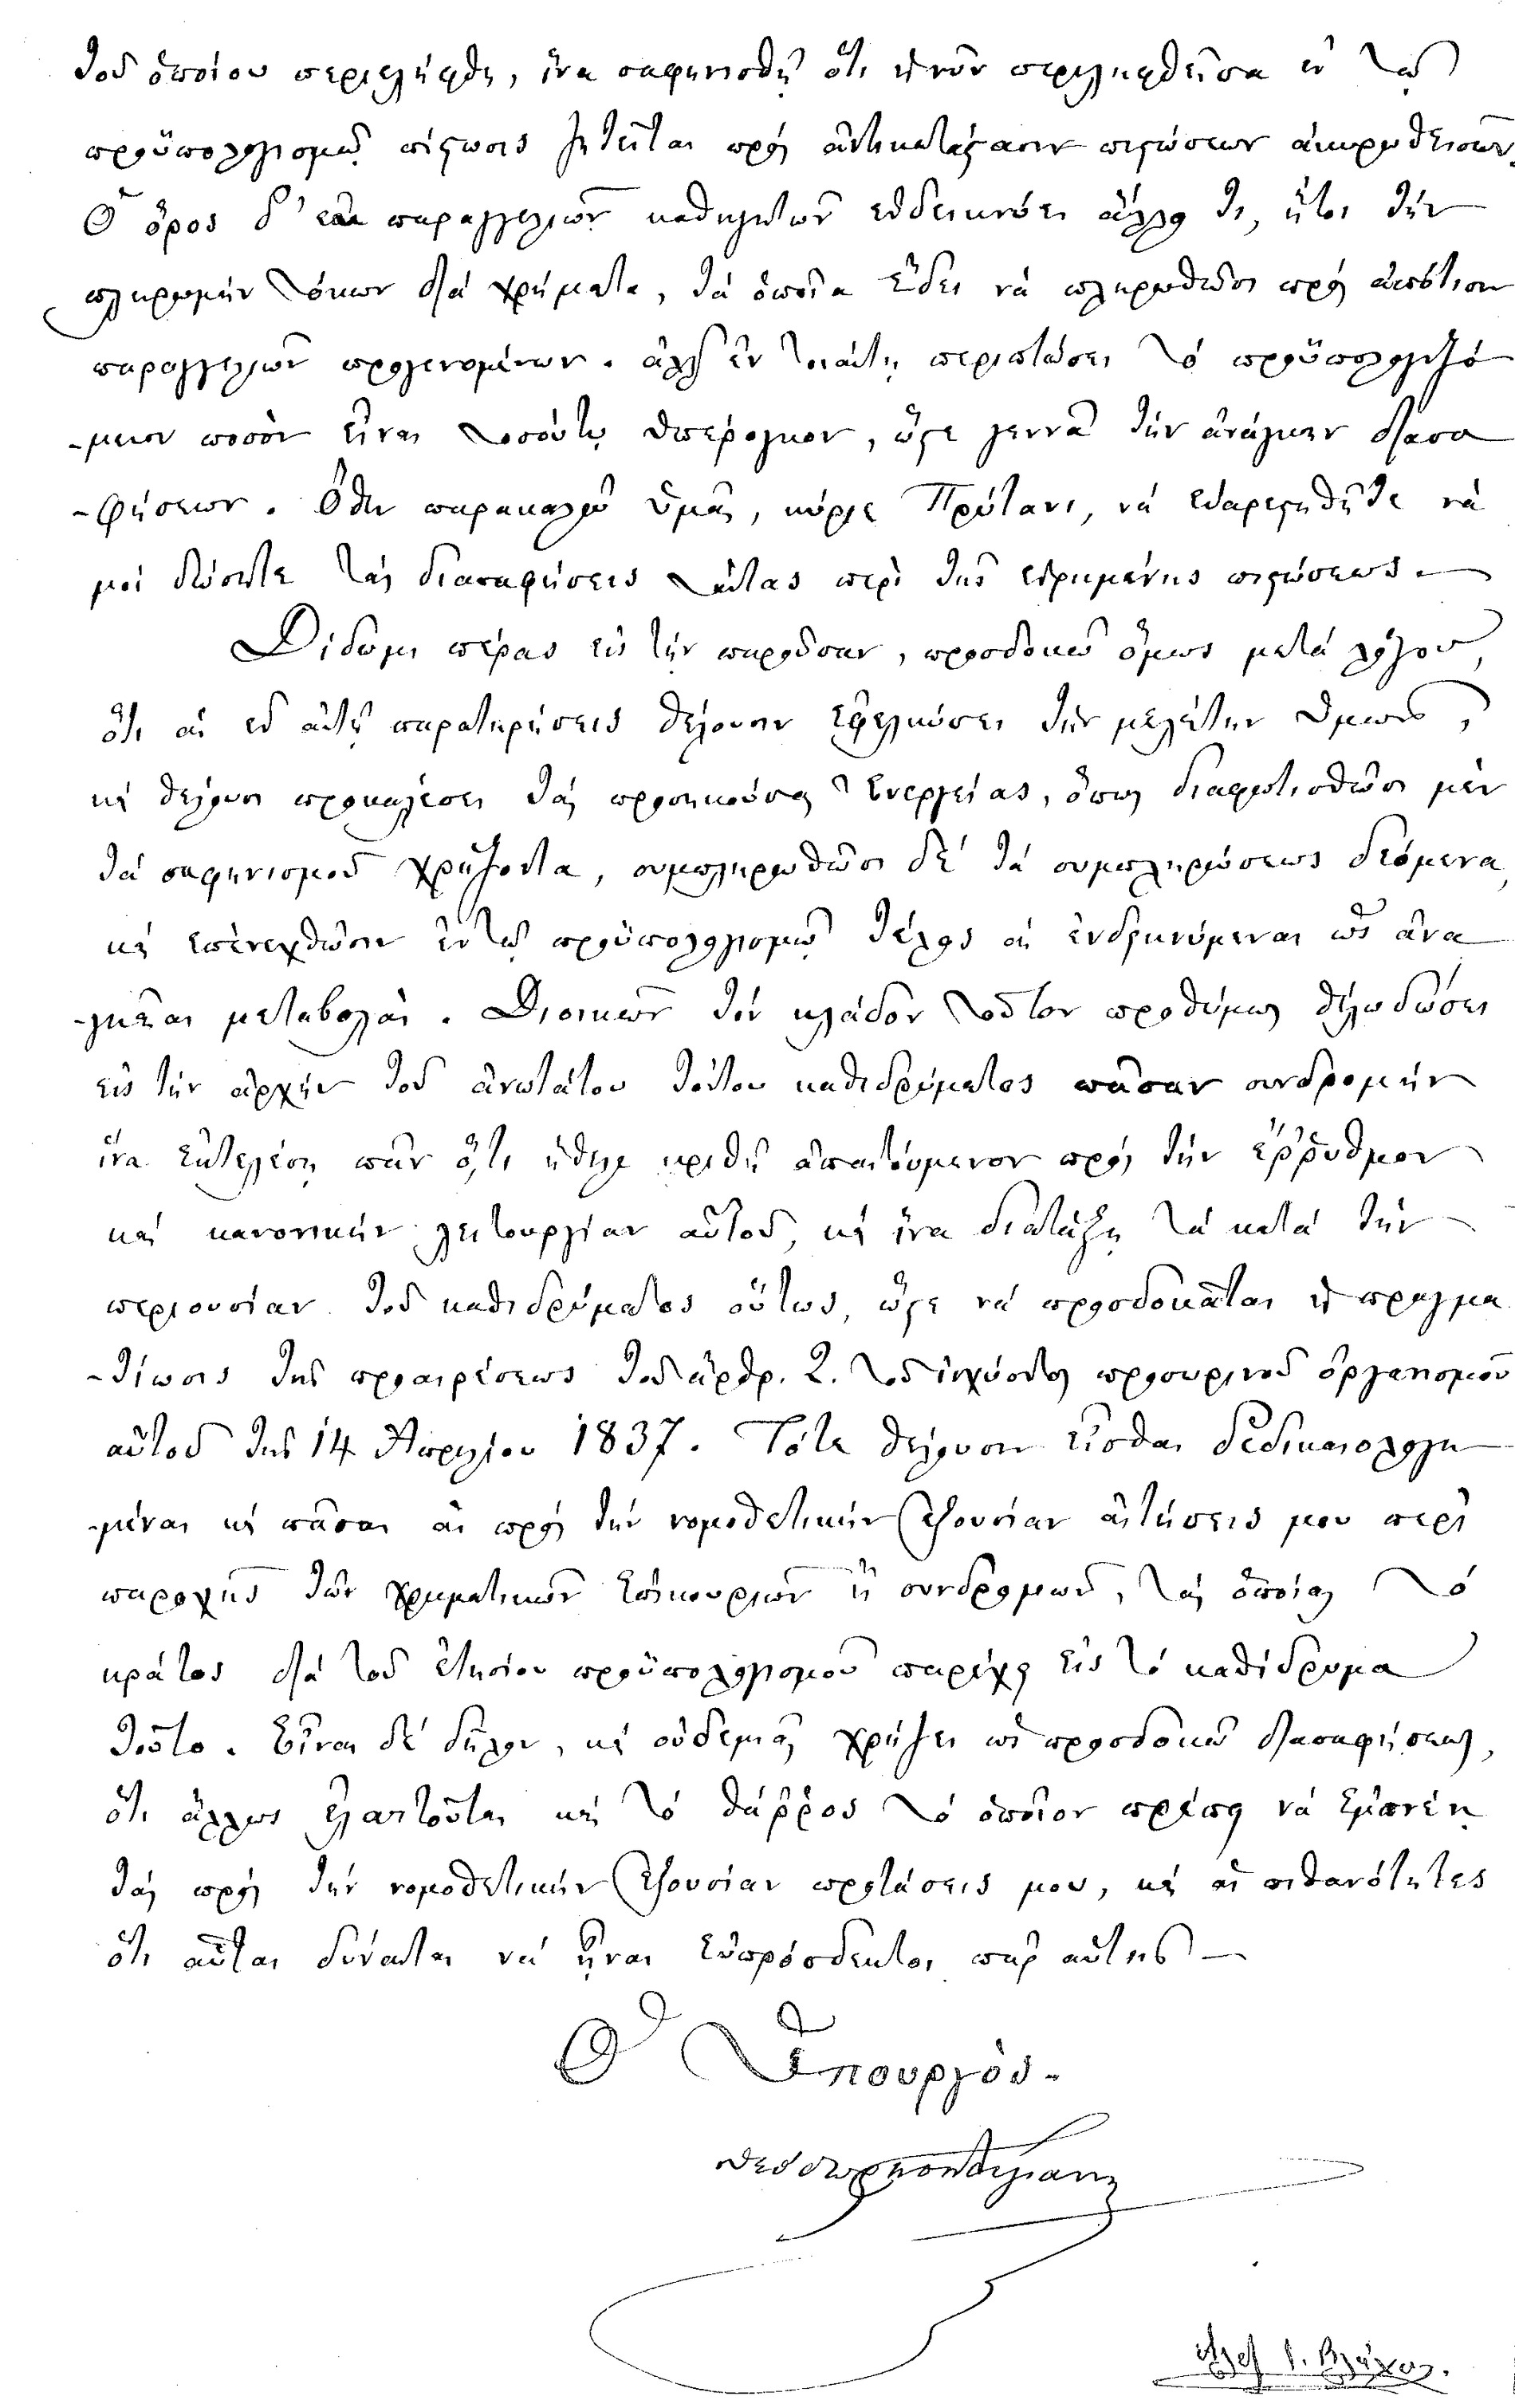 τοῦ ὁποίου περιελήφθη, ἵνα σαφηνισθῇ ὅτι ἡ νῦν περιληφθεῖσα ἐν τῷ
προϋπολογισμῷ πίστωσις ζητεῖται πρὸς ἀντικατάστασιν πιστώσεων ἀκυρωθεισῶν.
Ὁ ὅρος δ' παραγγελιῶν καθηγητῶν ἐνδεικνύει ἄλλο τι, ἤτοι τὴν
πληρωμὴν τόκων διὰ χρήματα, τὰ ὁποῖα ἔδει νὰ πληρωθῶσι πρὸς ἀπότισιν
παραγγελιῶν προγενομένων. ἀλλ' ἐν τοιαύτῃ περιστάσει τὸ προϋπολογιζό
-μενον ποσὸν εἶναι τοσούτῳ ὑπέρογκον, ὥστε γεννᾷ τὴν ἀνάγκην διασα
-φήσεων. Ὅθεν παρακαλῶ ὑμᾶς, κύριε Πρύτανι, νὰ εὐαρεστηθῆτε νὰ
μοὶ δώσητε τὰς διασαφήσεις ταύτας περὶ τῆς εἰρημένης πιστώσεως.—
Δίδωμι πέρας εἰς τὴν παροῦσαν, προσδοκῶ ὅμως μετὰ λόγου,
ὅτι αἱ ἐν αὐτῇ παρατηρήσεις θέλουσιν ἐφελκύσει τὴν μελέτην ὑμῶν,
καὶ θέλουσι προκαλέσει τὰς προσηκούσας ἐνεργείας, ὅπως διαφωτισθῶσι μὲν
τὰ σαφηνισμοῦ χρῄζοντα, συμπληρωθῶσι δὲ τὰ συμπληρώσεως δεόμενα,
καὶ ἐπενεχθῶσιν ἐν τῷ προϋπολογισμῷ τέλος αἱ ἐνδεικνύμεναι ὡς ἀνα
-γκαῖαι μεταβολαί. Διοικῶν τὸν κλάδον τοῦτον προθύμως θέλω δώσει
εἰς τὴν ἀρχὴν τοῦ ἀνωτάτου τούτου καθιδρύματος πᾶσαν συνδρομὴν
ἵνα ἐκτελέσῃ πᾶν ὅ,τι ἤθελε κριθῆ ἀπαιτούμενον πρὸς τὴν εὔρρυθμον
καὶ κανονικὴν λειτουργίαν αὐτοῦ, καὶ ἵνα διατάξῃ τὰ κατὰ τὴν
περιουσίαν τοῦ καθιδρύματος οὕτως, ὥστε νὰ προσδοκᾶται ἡ πραγμα
-τίωσις τῆς προαιρέσεως τοῦ ἄρθρ. 2. τοῦ ἰσχύοντος προσωρινοῦ ὀργανισμοῦ
αὐτοῦ τῆς 14 Ἀπριλίου 1837. Τότε θέλουσιν εἶσθαι δεδικαιολογη
-μέναι καὶ πᾶσαι αἱ πρὸς τὴν νομοθετικὴν ἐξουσίαν αἰτήσεις μου περὶ
παροχῆς τῶν χρηματικῶν ἐπικουριῶν ἢ συνδρομῶν, τὰς ὁποίας τὸ
κράτος διὰ τοῦ ἐτησίου προϋπολογισμοῦ παρέχει εἰς τὸ καθίδρυμα
τοῦτο. Εἶναι δὲ δῆλον, καὶ οὐδεμιᾶς χρῄζει ὡς προσδοκῶ διασαφήσεως,
ὅτι ἄλλως ἐλαττοῦται καὶ τὸ θάρρος τὸ ὁποῖον πρέπει νὰ ἐμπνέῃ
τὰς πρὸς τὴν νομοθετικὴν ἐξουσίαν προτάσεις μου, καὶ αἱ πιθανότητες
ὅτι αὗται δύνανται νὰ ᾖναι εὐπρόσδεκτοι παρ' αὐτῆς—
Ὁ Ὑπουργὸς.